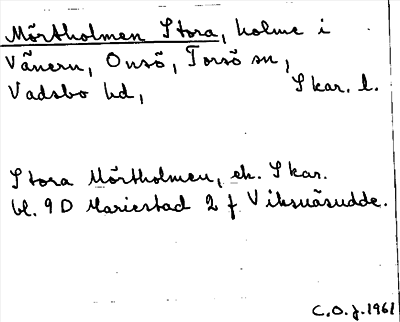 Mörtholmen Stora, holme i
Vänern, Onsö, Torsö sn,
Vadsbo hd, Skar. l.
Stora Mörtholmen, ek. Skar.
bl. 9D Mariestad 2 f Viksnäsudde.
C.O.J. 1961